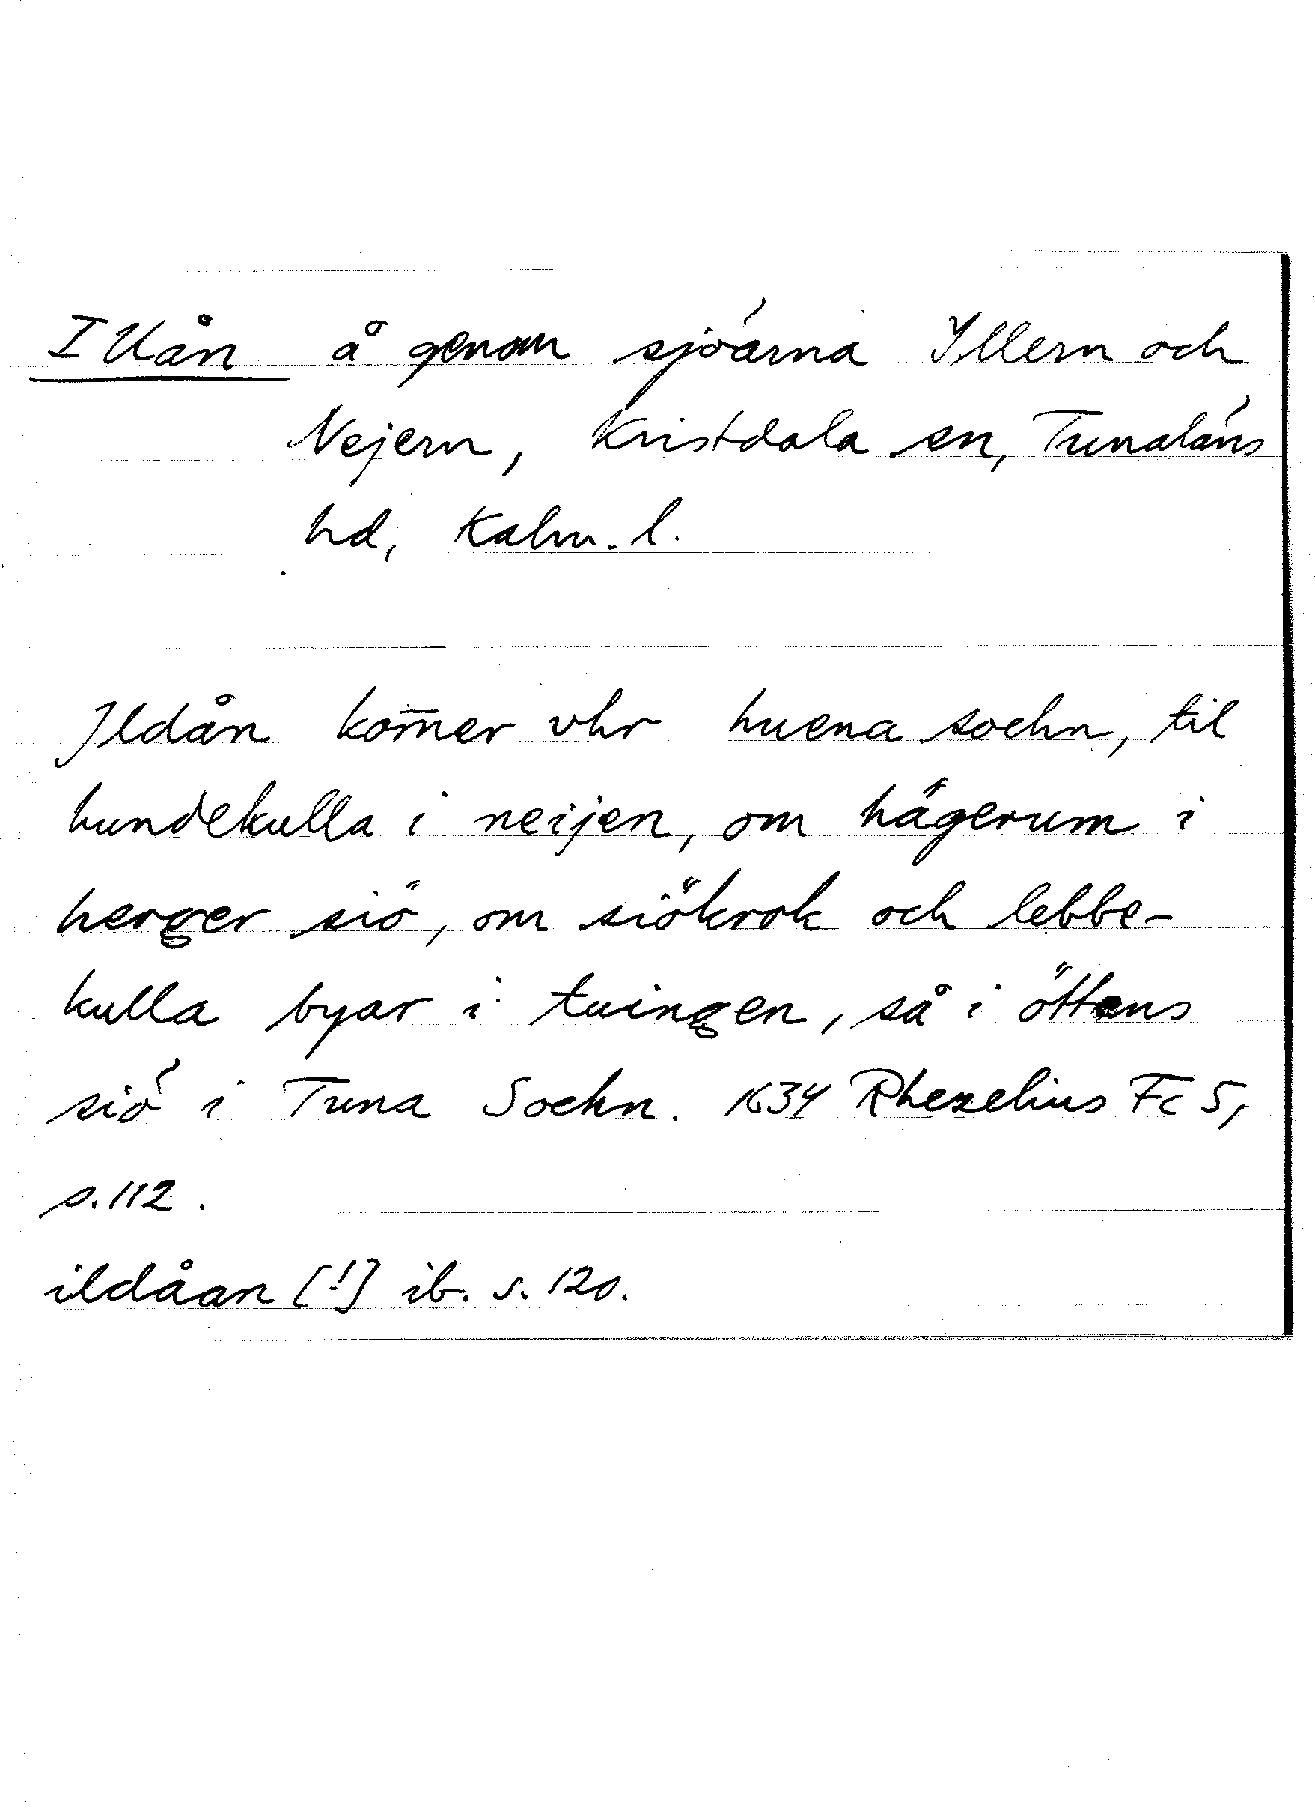 Illån å genom sjöarna Yllern och
Nejern, Kristdala sn, Tunaläns
hd, Kalm. l.
Jldån kom̅er vhr huena sochn, til
hundekulla i neijen, om hägerum i
herger siö, om siökrok och lebbe-
kulla byar i tuingen, så i öttens
siö i Tuna Sochn. 1634 Rhezelius Fc 5,
s. 112.
ildåan [!] ib. s. 120.